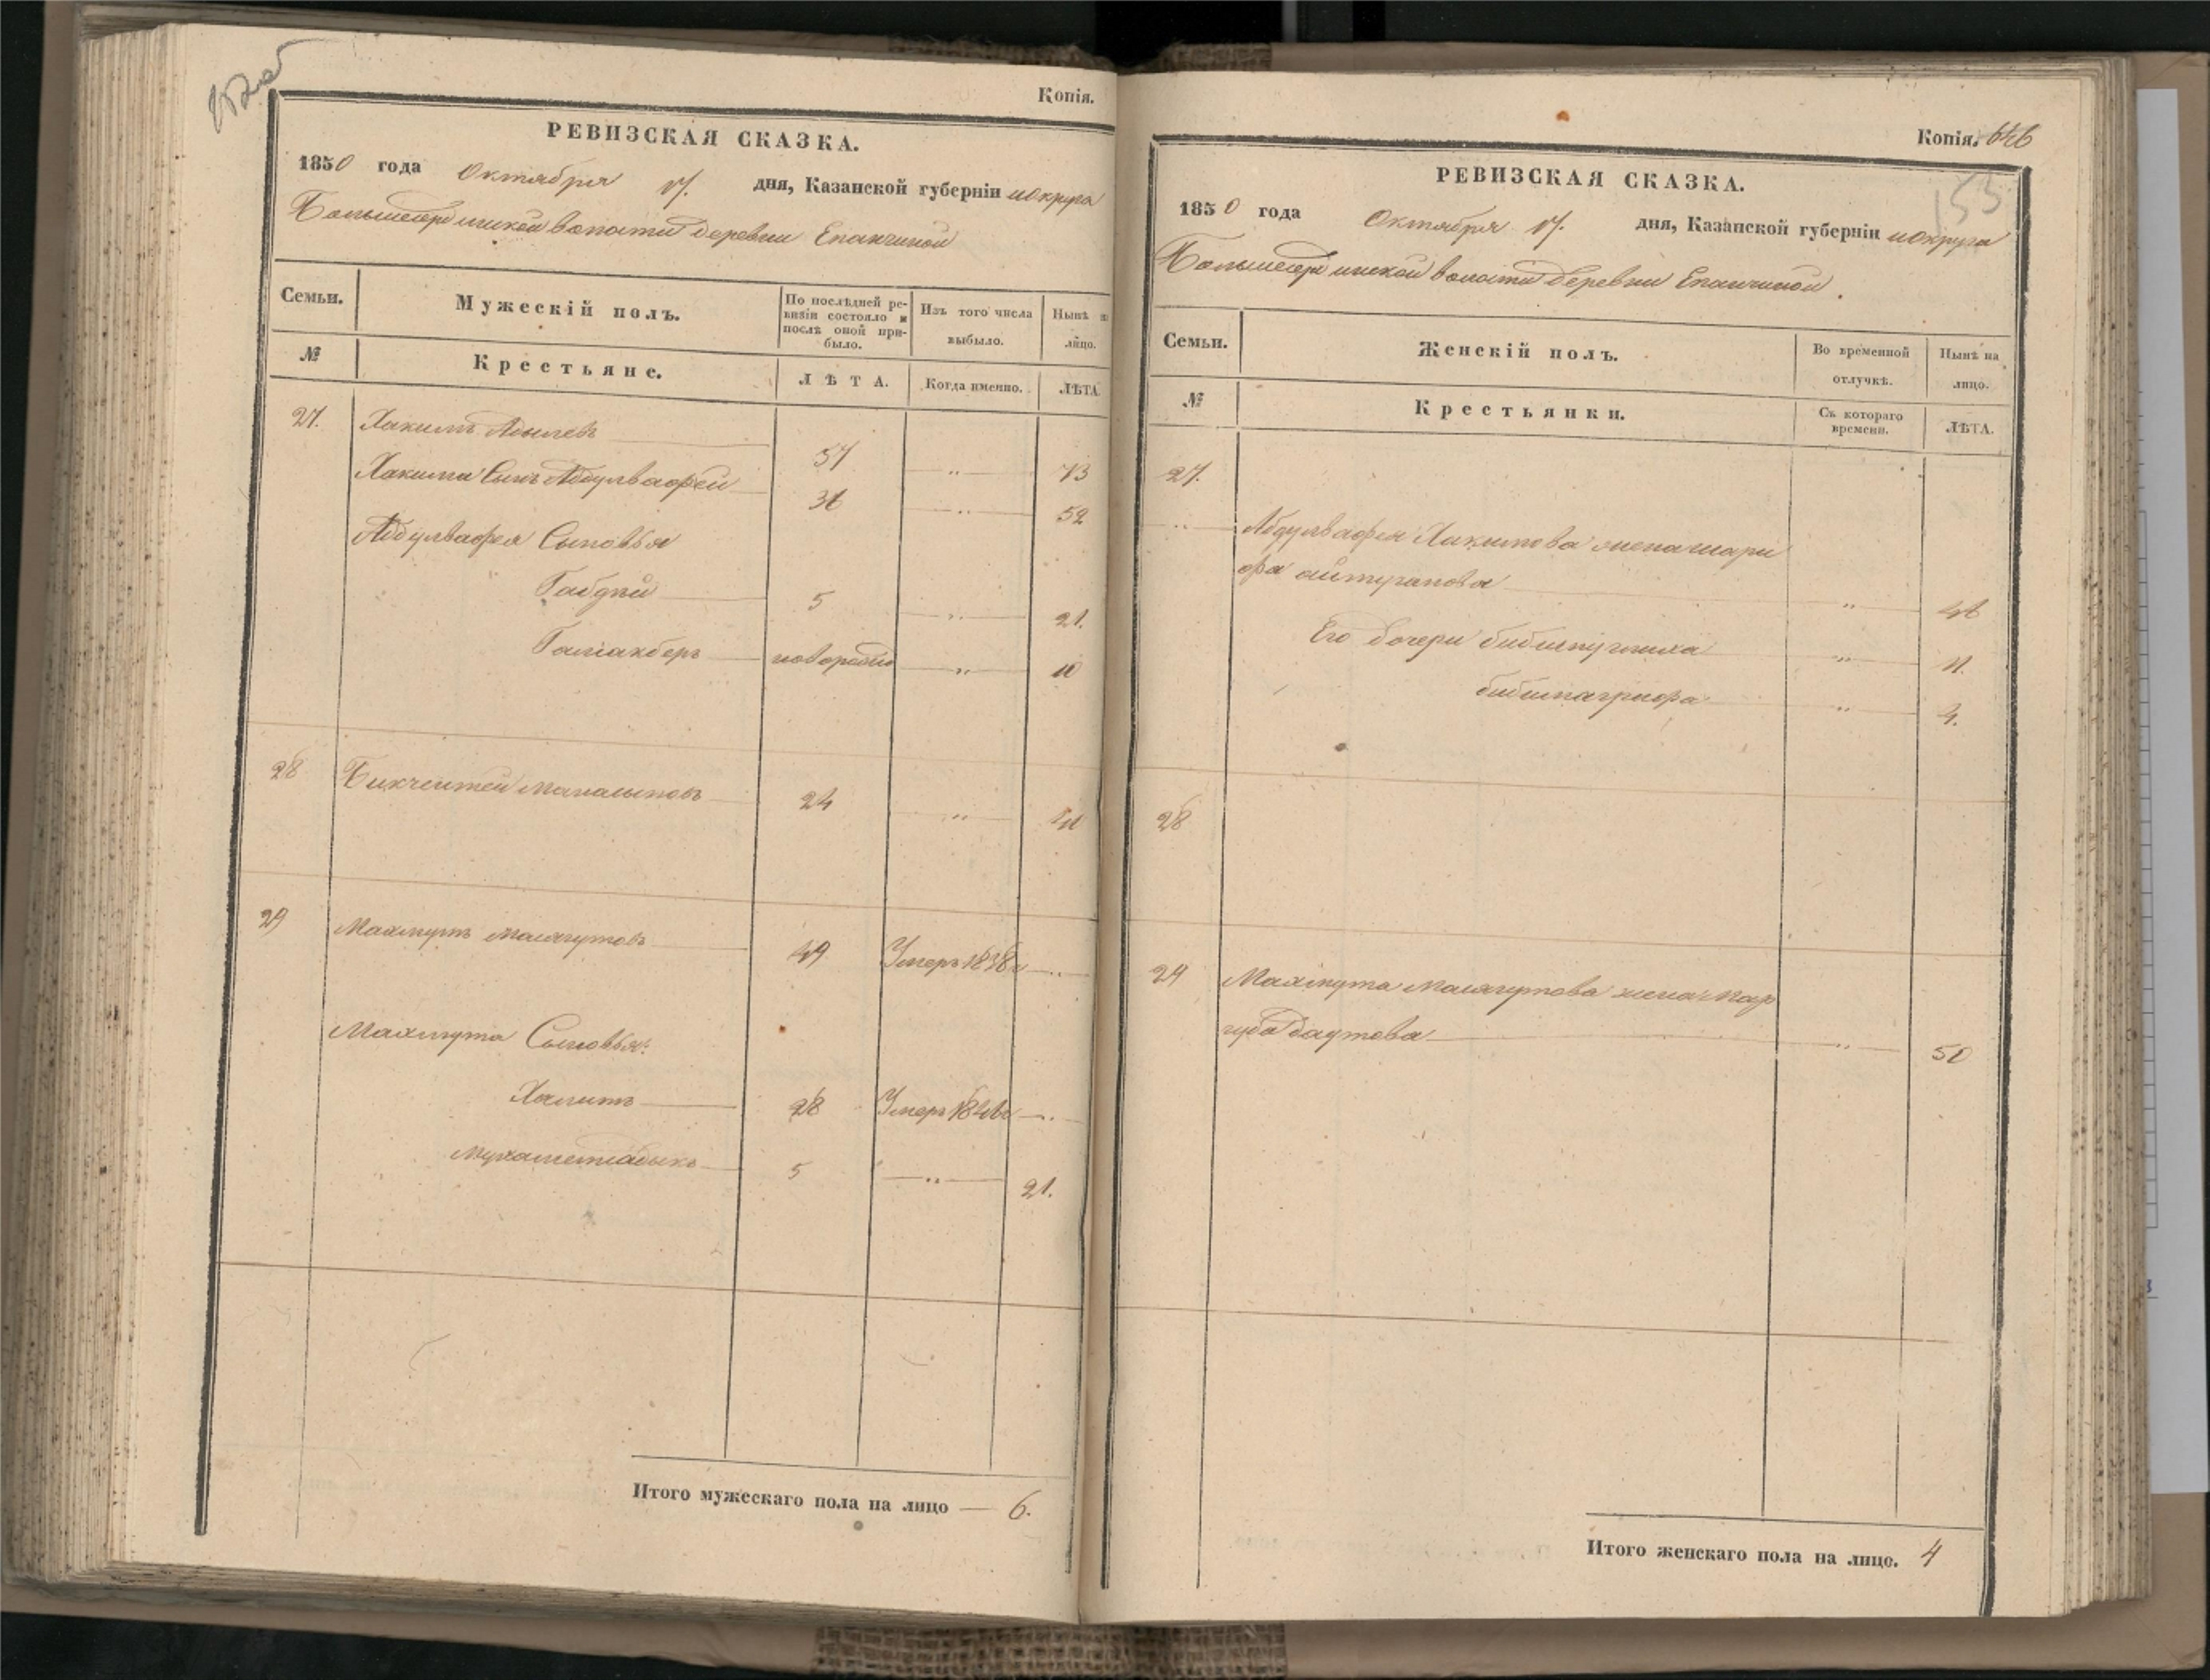 152об
Копія.
РЕВИЗСКАЯ СКАЗКА.
1850 года Октября 17. дня, Казанской губерніи и округа
волости деревни Епанчиной
Семьи. Мужескій полъ. По послѣдней ревизіи состояло и послѣ оной прибыло. Изъ того числа выбыло. Нынѣ на лицо.
№ Крестьяне. ЛѢТА. Когда именно. ЛѢТА.
27. Хакимъ Адылевъ 57 „ 73
Хакима Сынъ Абдулвафей 36 „ 52
Абдулвафея Сыновья
Габдни 5 „ 21.
Галіакберъ новорожде „ 10
28 Бикчентей 24 „ 40
29 Махмутъ Масягутовъ 49 Умеръ 1838г „
Махмута Сыновья:
Халитъ 28 Умеръ 1846г „
5 „ 21.
Итого мужескаго пола на лицо — 6.
Копія. 646
153
РЕВИЗСКАЯ СКАЗКА.
1850 года Октября 17. дня, Казанской губерніи и округа
волости деревни Епанчиной.
Семьи. Женскій полъ. Во временной отлучкѣ. Нынѣ на лицо.
№ Крестьянки. Съ котораго времени. ЛѢТА.
27.
„ Абдулвафея Хакимова жена шари
фа айтуганова „ 46
Его дочери „ 11.
„ 4.
28
29 Махмута Масягутова жена Мар
губа Даутова „ 50
Итого женскаго пола на лицо. 4